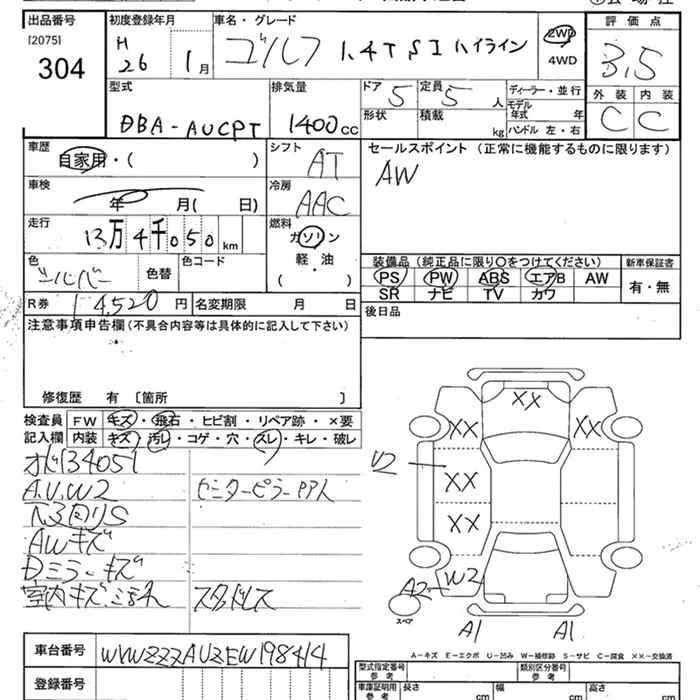 出品番号 初度登録年月 車名・グレード 評価点
[2075] 304 H 26 1月 ゴルフ 1.4TSIハイライン 2WD 4WD 3.5
型式 排気量 ドア 5 定員 5 人 ディーラー・並行 外装 内装
DBA-AUCPT 1400 cc 形状 積載 kg モデル年式 年 ハンドル 左・右 C C
車歴 シフト セールスポイント (正常に機能するものに限ります)
自家用・( ) AT AW
車検 年 月( 日) 冷房 AAC
走行 13万4千050km 燃料 ガソリン 軽・油 ( )
装備品 (純正品に限り〇をつけてください) 新車保証書
色 シルバー 色替 色コード PS PW ABS エアB AW 有・無
SR ナビ TV カワ
R券 14,520円 名変期限 月 日 後日品
注意事項申告欄(不具合内容等は具体的に記入して下さい)
修復歴 有 〔箇所 〕
検査員 FW キズ・飛石・ヒビ割・リペア跡・×要
記入欄 内装 キズ・汚レ・コゲ・穴・スレ・キレ・破レ
134051
A.U.W2 センターピラー
下回りS
AWキズ
Dミラーキズ
室内キズ・汚れ スタッドレス
XX
XX XX
U2
XX
XX
A2 W2
スペア
A1 A1
A-キズ E-エクボ U-凹み W-補修跡 S-サビ C-腐食 XX-交換済
車台番号 WVWZZZAUZEW198414
登録番号
型式指定番号 参考 類別区分番号 参考
車庫証明用 参考 長さ cm 幅 cm 高さ cm